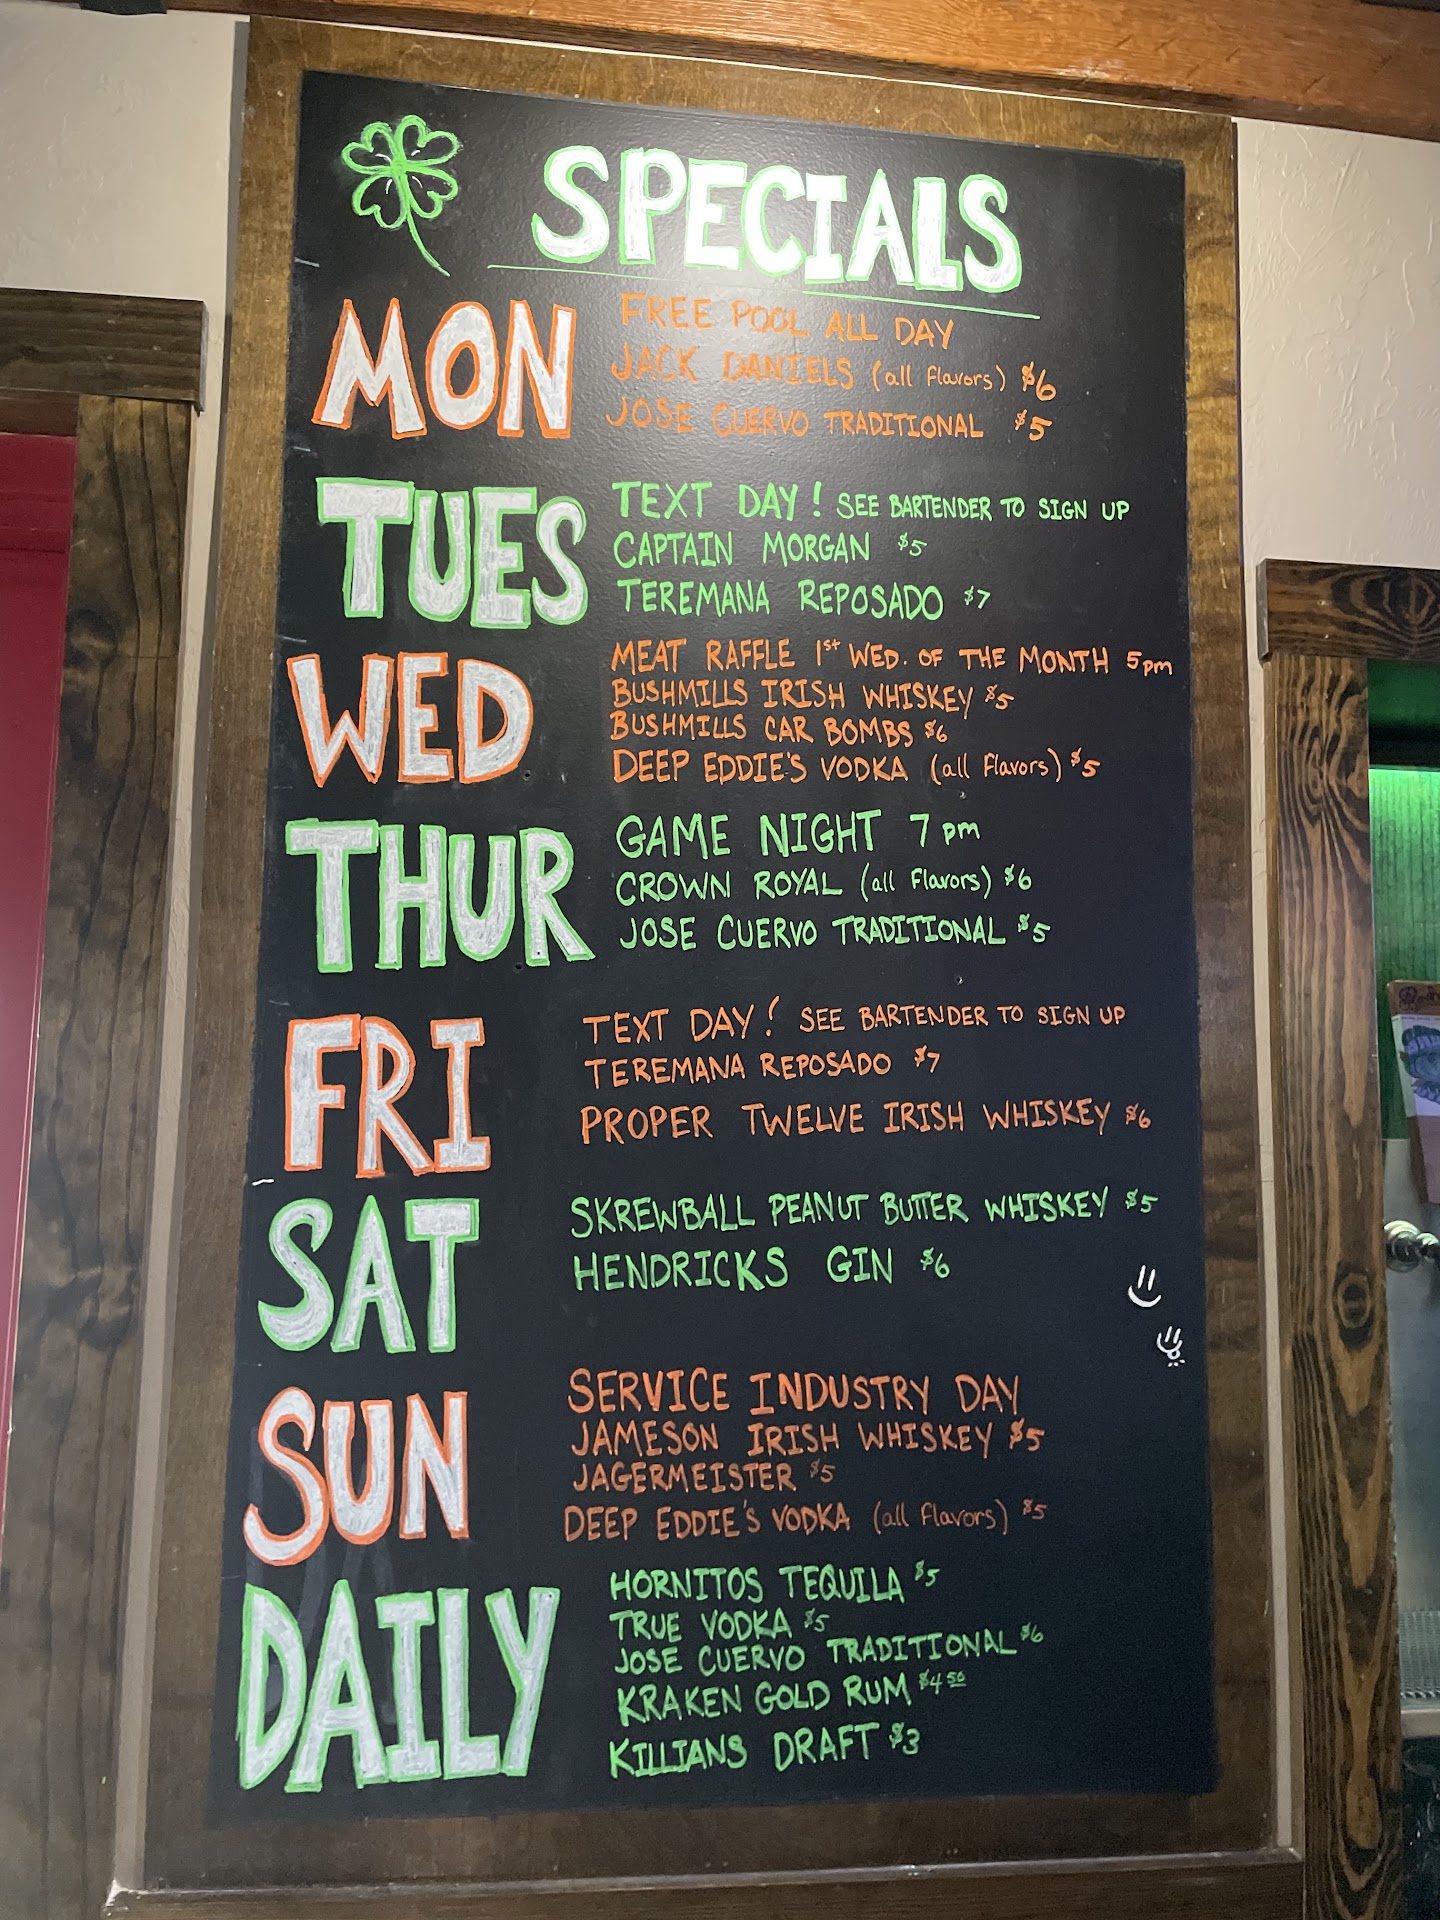 SPECIALS
MON
FREE POOL ALL DAY
JACK DANIELS (all Flavors) $6
JOSE CUERVO TRADITIONAL $5
TUES
TEXT DAY! SEE BARTENDER TO SIGN UP
CAPTAIN MORGAN $5
TEREMANA REPOSADO $7
WED
MEAT RAFFLE 1st WED. OF THE MONTH 5pm
BUSHMILLS IRISH WHISKEY $5
BUSHMILLS CAR BOMBS $6
DEEP EDDIE'S VODKA (all Flavors) $5
THUR
GAME NIGHT 7pm
CROWN ROYAL (all Flavors) $6
JOSE CUERVO TRADITIONAL $5
FRI
TEXT DAY! SEE BARTENDER TO SIGN UP
TEREMANA REPOSADO $7
PROPER TWELVE IRISH WHISKEY $6
SAT
SKREWBALL PEANUT BUTTER WHISKEY $5
HENDRICKS GIN $6
SUN
SERVICE INDUSTRY DAY
JAMESON IRISH WHISKEY $5
JAGERMEISTER $5
DEEP EDDIE'S VODKA (all Flavors) $5
DAILY
HORNITOS TEQUILA $5
TRUE VODKA $5
JOSE CUERVO TRADITIONAL $6
KRAKEN GOLD RUM $4 50
KILLIANS DRAFT $3